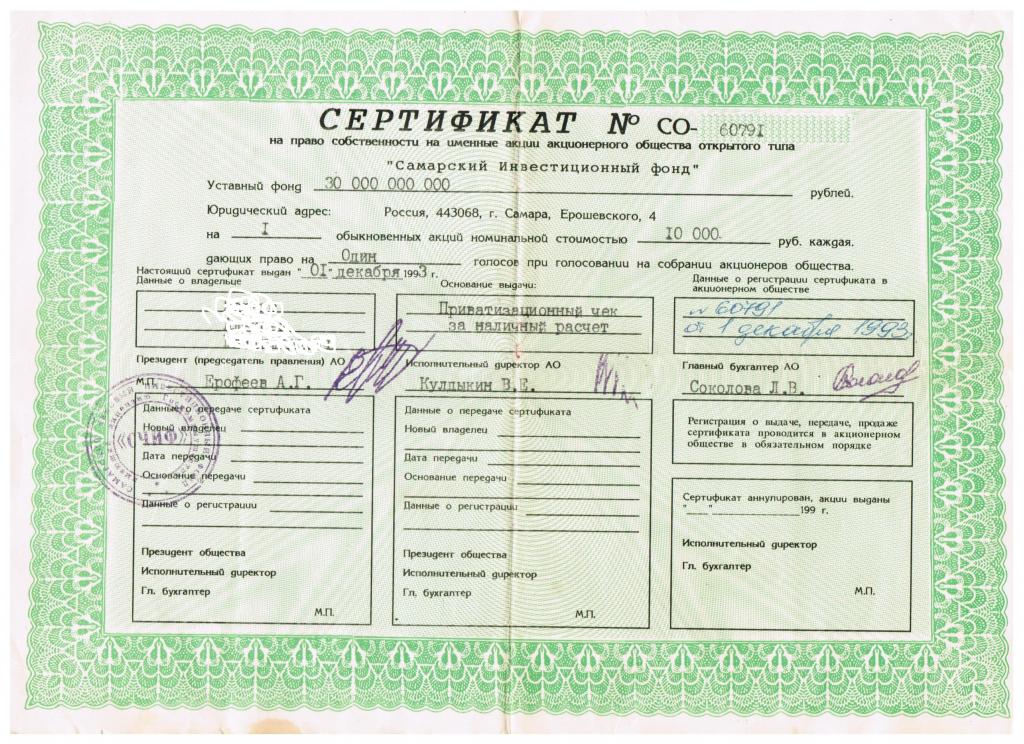 СЕРТИФИКАТ № СО- 6079I
на право собственности на именные акции акционерного общества открытого типа
"Самарский Инвестиционный фонд"
Уставный фонд 30 000 000 000 рублей.
Юридический адрес: Россия, 443068, г. Самара, Ерошевского, 4
на I обыкновенных акций номинальной стоимостью IO 000 руб. каждая.
дающих право на Один голосов при голосовании на собрании акционеров общества.
Настоящий сертификат выдан "OI" декабря 1993 г.
Данные о владельце
Основание выдачи:
Приватизационный чек
за наличный расчет
Данные о регистрации сертификата в
акционерном обществе
№ 60791
от 1 декабря 1993г
Президент (председатель правления) АО
М.П. Ерофеев А.Г.
Исполнительный директор АО
Кулдыкин В.Е.
Главный бухгалтер АО
Соколова Л.В.
«СЧИФ»
Данные о передаче сертификата
Новый владелец
Дата передачи
Основание передачи
Данные о регистрации
Президент общества
Исполнительный директор
Гл. бухгалтер
М.П.
Данные о передаче сертификата
Новый владелец
Дата передачи
Основание передачи
Данные о регистрации
Президент общества
Исполнительный директор
Гл. бухгалтер
М.П.
Регистрация о выдаче, передаче, продаже
сертификата проводится в акционерном
обществе в обязательном порядке
Сертификат аннулирован, акции выданы
"____"________________199 г.
Исполнительный директор
Гл. бухгалтер
М.П.